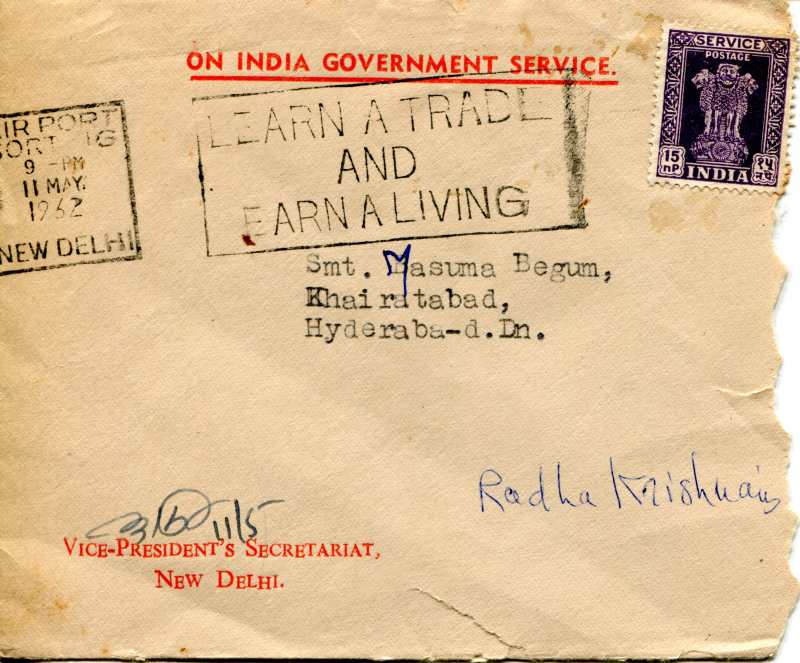 ON INDIA GOVERNMENT SERVICE.
SERVICE
POSTAGE
15
nP
INDIA
१५
न.पै.
AIR PORT
SORTING
9 -PM
11 MAY.
1962
NEW DELHI
LEARN A TRADE
AND
EARN A LIVING
Smt. Masuma Begum,
Khairatabad,
Hyderaba-d.Dn.
Radha Krishnan's
11/5
VICE-PRESIDENT'S SECRETARIAT,
NEW DELHI.